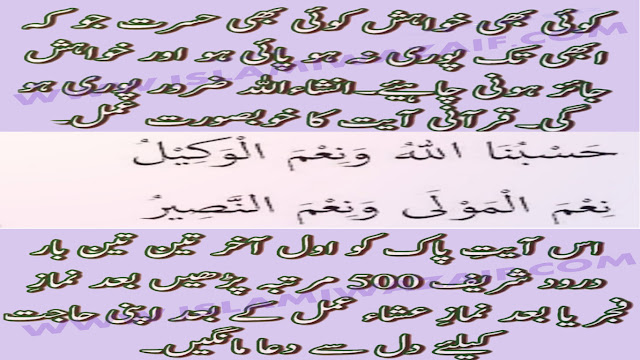 کوئی بھی خواہش کوئی بھی حسرت جو کہ
ابھی تک پوری نہ ہو پائی ہو اور خواہش
جائز ہونی چاہیئے۔انشاءاللہ ضرور پوری ہو
گی۔ قرآنی آیت کا خوبصورت عمل۔
حَسْبُنَا اللهُ وَنِعْمَ الْوَكِيْلُ
نِعْمَ الْمَوْلَى وَنِعْمَ النَّصِيرُ
اس آیتِ پاک کو اول آخر تین تین بار
درود شریف 500 مرتبہ پڑھیں بعد نمازِ
فجر یا بعد نمازِ عشاء عمل کے بعد اپنی حاجت
کیلئے دل سے دعا مانگیں۔
WWW.ISLAMIWAZAIF.COM
WWW.ISLAMIWAZAIF.COM